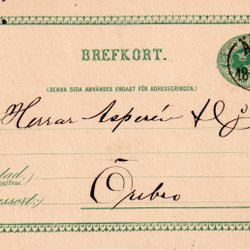 BREFKORT.
(DENNA SIDA ANVÄNDES ENDAST FÖR ADRESSERINGEN.)
Herrar Asperén &
Örebro